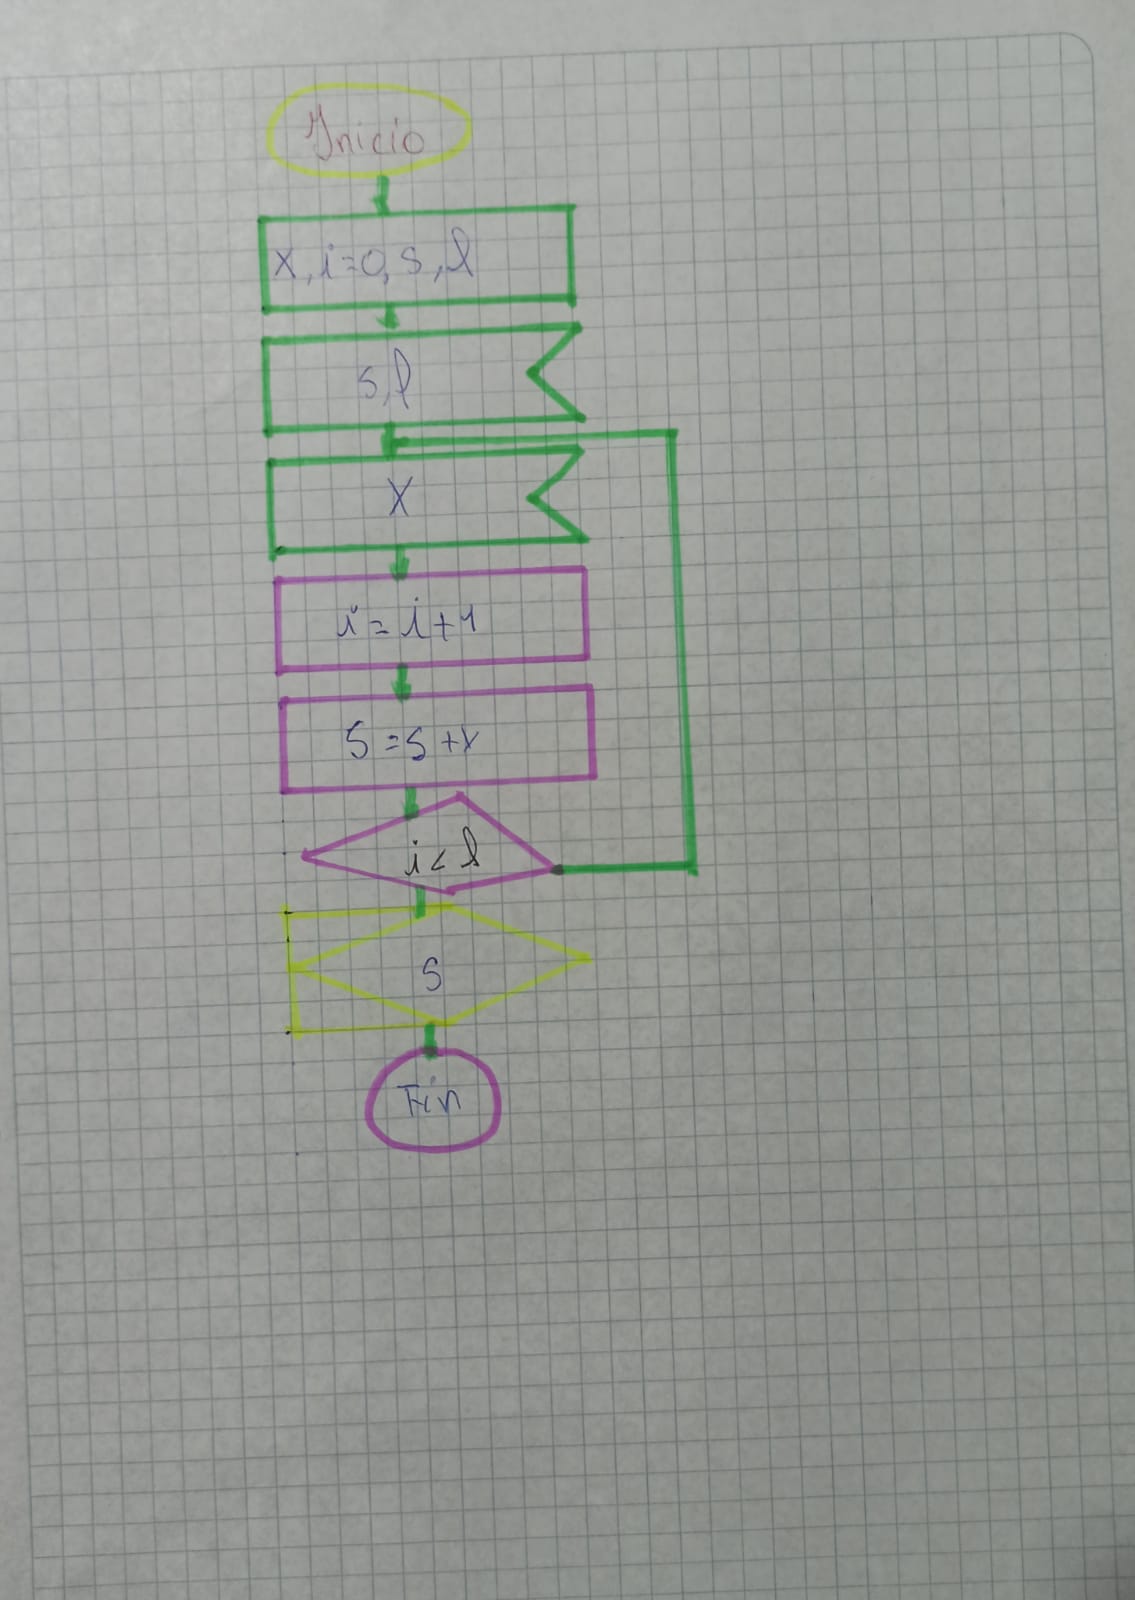 Inicio
x, i=0, s, l
s, l
X
i = i + 1
S = s + x
i < l
S
Fin